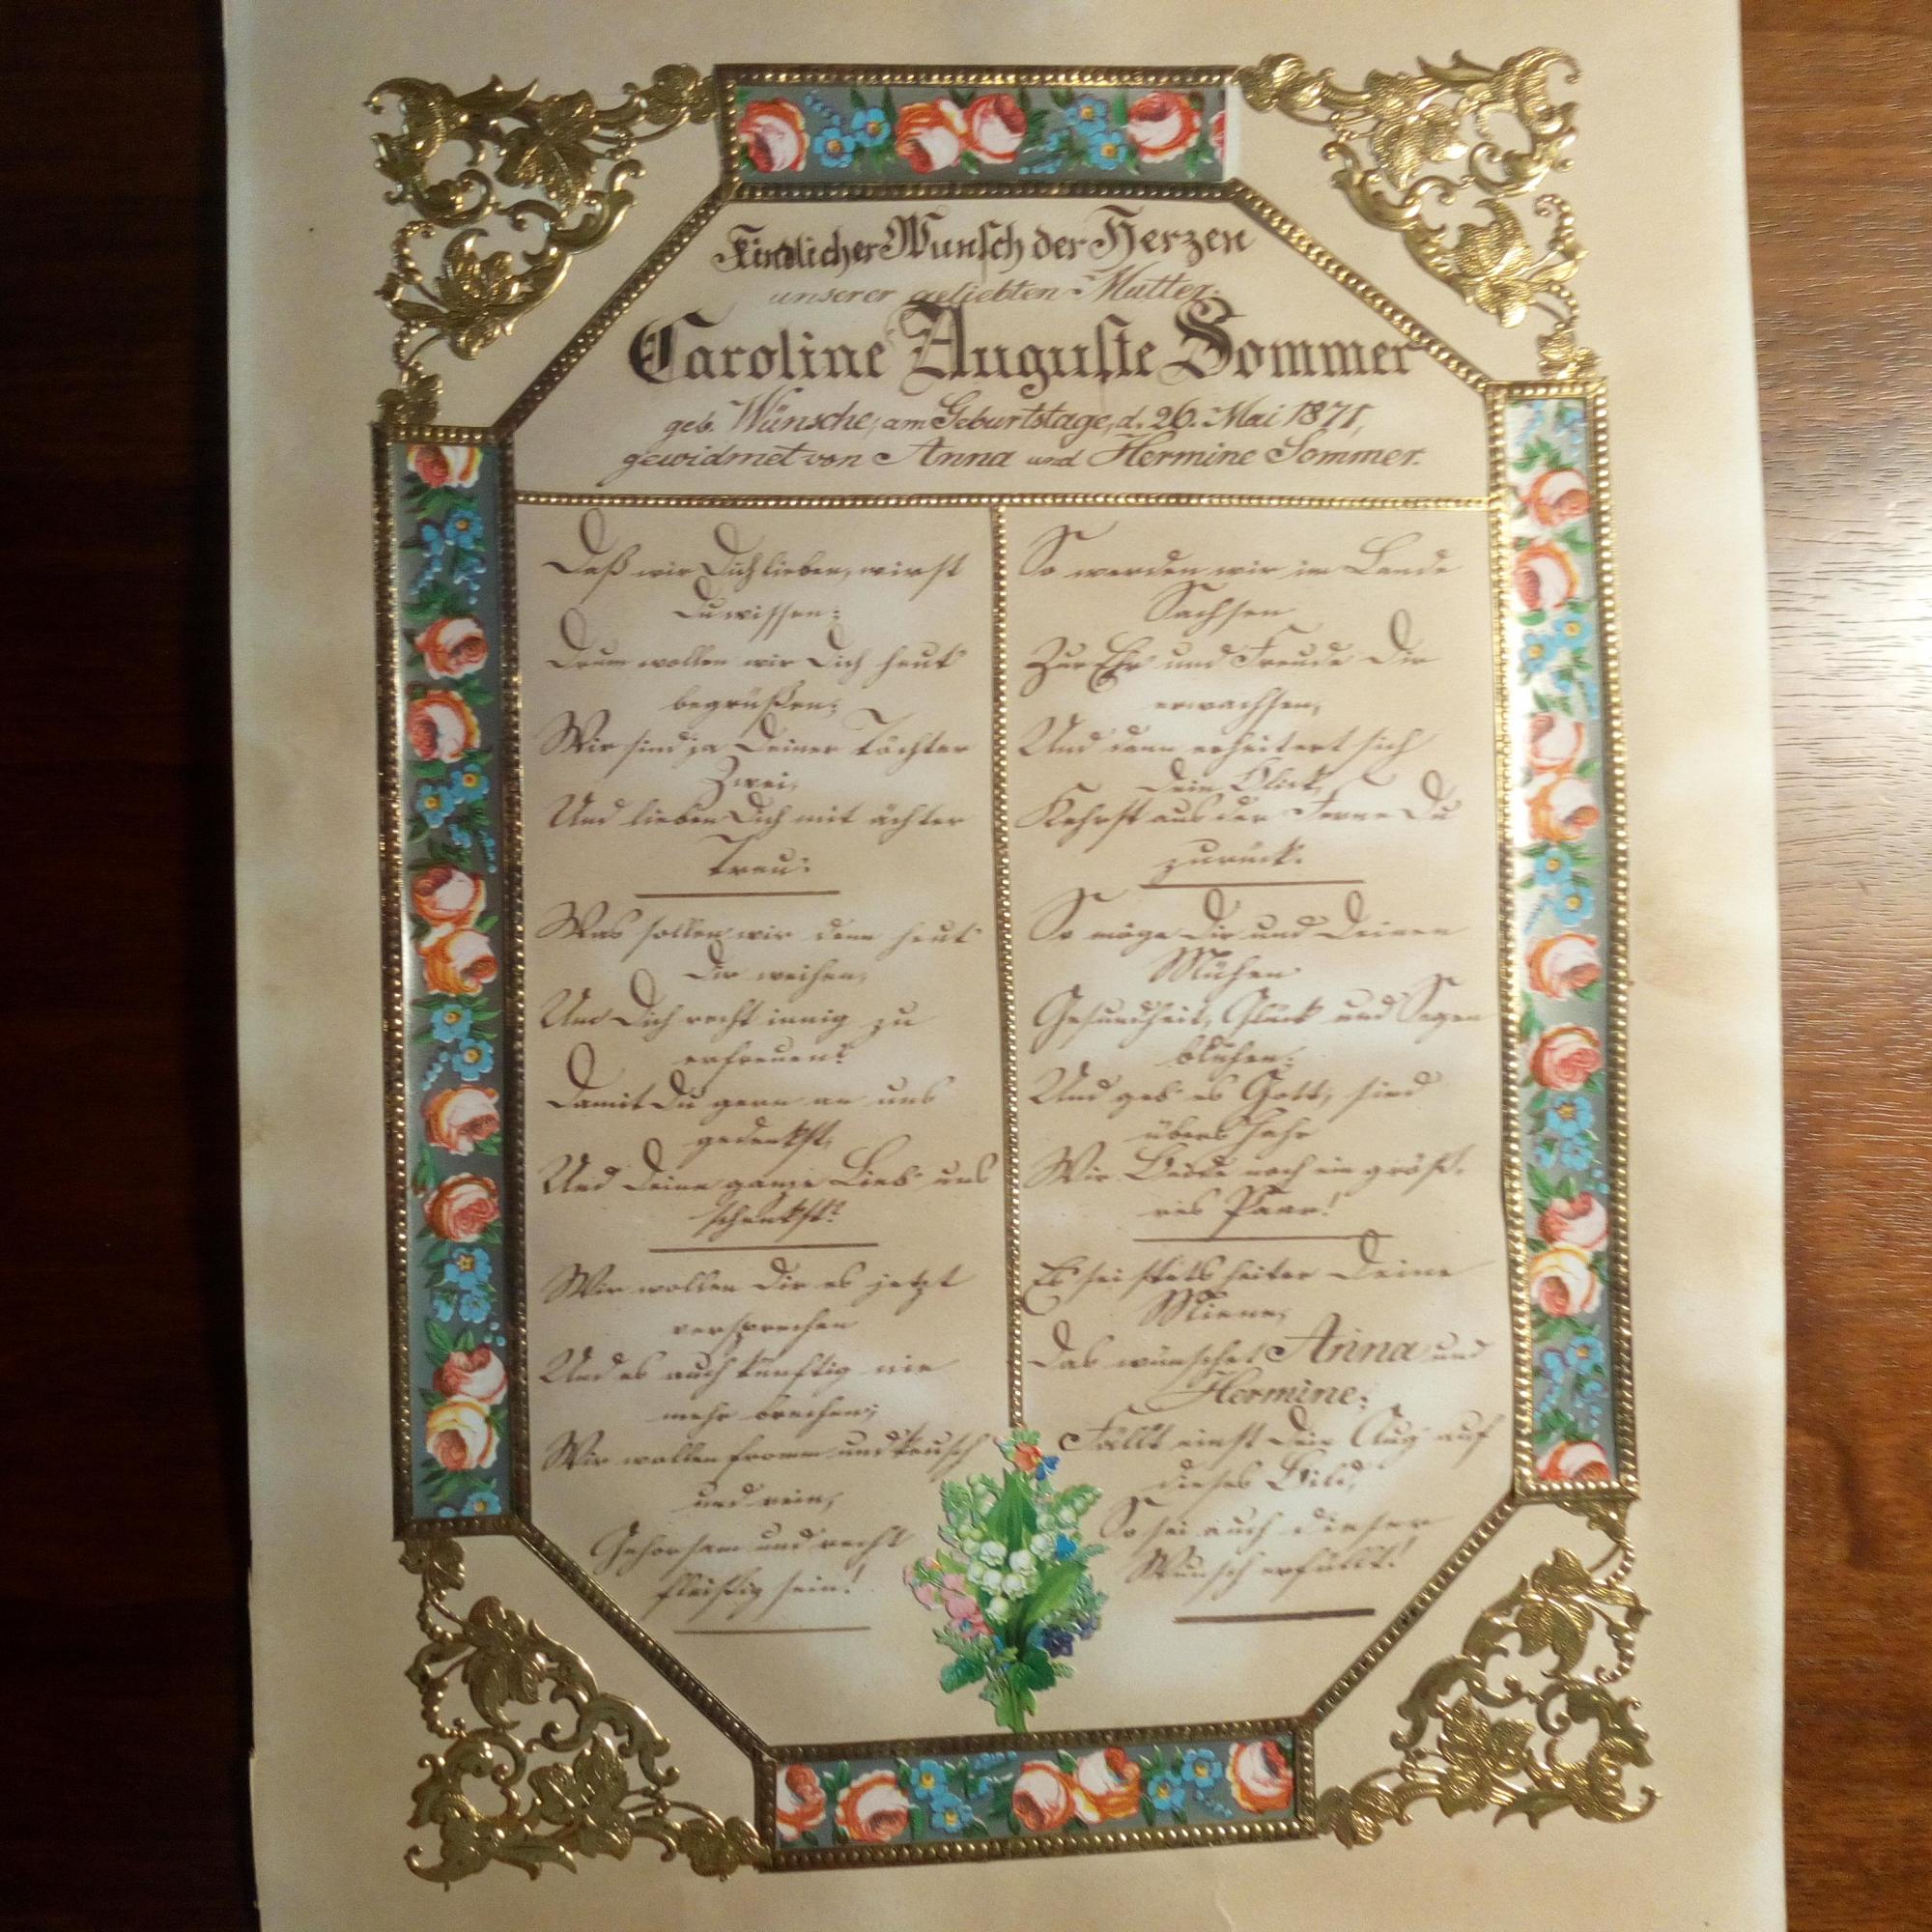 Kindlicher Wunsch der Herzen
unserer geliebten Mutter,
Caroline Auguste Sommer
geb. Wünsche, am Geburtstage, d. 26. Mai 1871,
gewidmet von Anna und Hermine Sommer.
Daß wir Dich lieben, wirst
Du wissen;
Drum wollen wir Dich heut
begrüßen;
Wir sind ja Deiner Töchter
Zwei,
Und lieben Dich mit ächter
Treu:
Was sollen wir denn heut
Dir weihen,
Um Dich recht innig zu
erfreuen?
Damit Du gern an uns
gedenkst,
Und Deine ganze Lieb' uns
schenkst?
Wir wollen Dir es jetzt
versprechen
Und es auch künftig nie
mehr brechen;
Wir wollen fromm und keusch
und rein,
Gehorsam und recht
fleißig sein!
So werden wir im Lande
Sachsen
Zur Ehr' und Freude Dir
erwachsen,
Und dann erheitert sich
Dein Blick,
Kehrst aus der Ferne Du
zurück.
So möge Dir und Deinen
Mühen
Gesundheit, Glück und Segen
blühen;
Und geb' es Gott, sind
übers Jahr
Wir Beide noch ein größ-
res Paar!
Es sei stets heiter Deine
Miene,
Das wünschet Anna und
Hermine;
Fällt einst Dein Aug' auf
dieses Bild,
So sei auch dieser
Wunsch erfüllt!